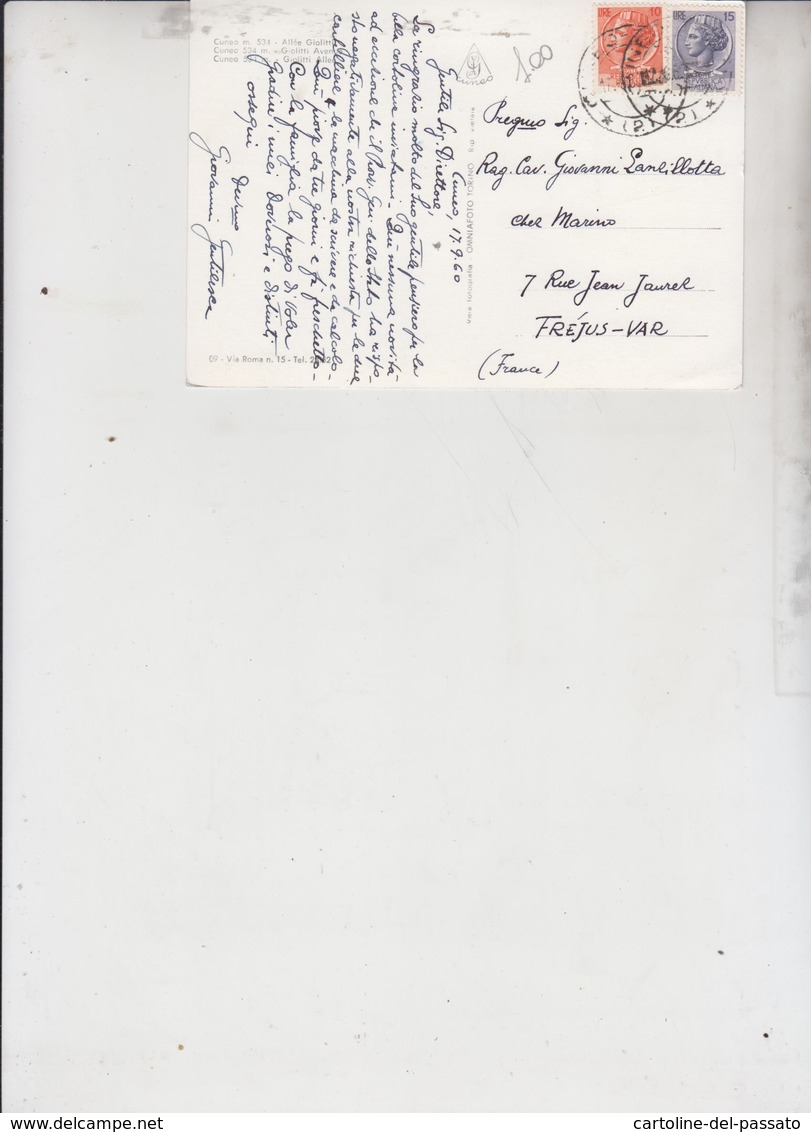 Cuneo m. 534 - Allée Giolitti
Cuneo 534 m. - Giolitti Aven
Cuneo 5 - Giolitti Allee
CUNEO
400
LIRE 10
LIRE 15
(2)
Cuneo, 17.9.60
Gentile Sig. Direttore,
La ringrazio molto del Suo gentile pensiero per la
bella cartolina inviatami - Qui nessuna novità
ad eccezione che il Prov. Gen. dello Stato ha rispo
sto negativamente alla nostra richiesta per le due
e la macchina da scrivere e da calcolo -
Qui piove da tre giorni e fa freschetto -
Con la famiglia la prego di voler
gradire i miei doverosi e distinti
ossequi
Giovanni
Vera fotografia - OMNIAFOTO TORINO
09 - Via Roma n. 15 - Tel.
Pregmo Sig.
Rag. Cav. Giovanni Lancillotta
chez Marino
7 Rue Jean Jaurel
FRÉJUS-VAR
(France)
www.delcampe.net
cartoline-del-passato